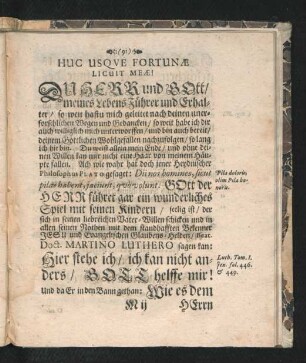 (91)
HUC USQVE FORTUNÆ
LICUIT MEÆ!
DU HERR und GOtt/
meines Lebens Führer und Erhal-
ter/ so weit hastu mich geleitet nach deinen uner-
forschlichen Wegen und Gedancken/ so weit habe ich dir
auch williglich mich unterworffen/ und bin auch bereit/
deinem Göttlichen Wohlgefallen nachzufolgen/ so lang
ich hie bin. Du weist allein mein Ende/ und ohne dei-
nen Willen kan mir nicht ein Haar von meinem Häup-
te fallen. Ach wie wahr hat doch jener Heydnischer
Philosophus PLATO gesaget: Dii nos homines, sicut
pilas habent, GOtt der
HERR führet gar ein wunderliches
Spiel mit seinen Kindern/ seelig ist/ der
sich in seinen lieberlichen Vater-Willen schicken und in
allen seinen Nöthen mit dem standhafften Bekenner
JESU und Evangelischen Glaubens-Helden/
Doct. MARTINO LUTHERO sagen kan:
Hier stehe ich/ ich kan nicht an-
ders/ GOTT helffe mir!
Und da Er in den Bann gethan: Wie es dem
M ij HErrn
Pila doloris,
olim Pila ho-
noris.
Luth. Tom. I.
Jen. fol. 446.
& 449.